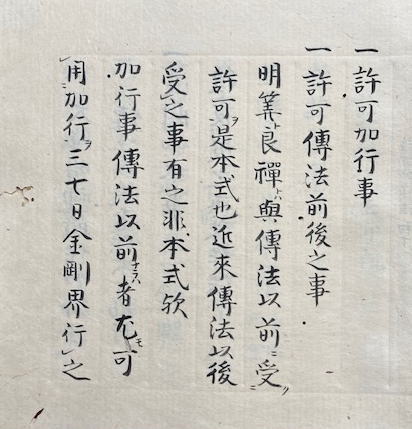 一許可加行事
一許可傳法前後之事
明筭良禪與傳法以前ニ受
許可ヲ是本式也近來傳法以後
受之事有之非本式欤
加行事傳法以前者ナラハ尤モ可
用加行ヲ三七日金剛界行之